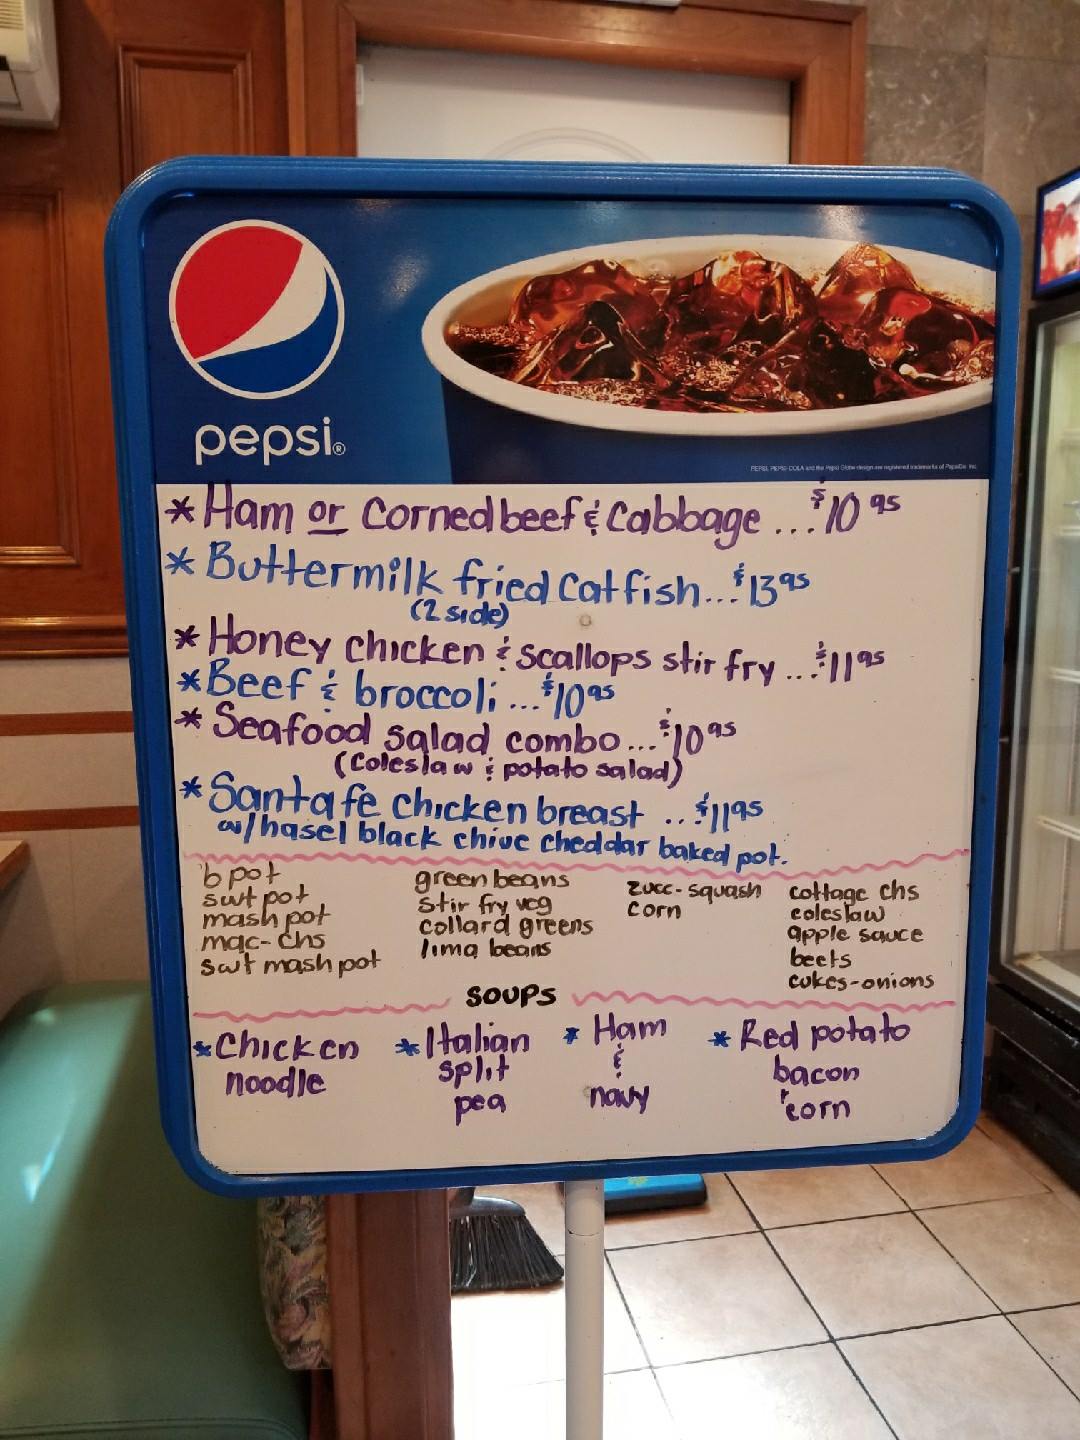 pepsi®
PEPSI, PEPSI-COLA and the Pepsi Globe design are registered trademarks of PepsiCo, Inc.
* Ham or Corned beef & Cabbage ... $10 95
* Buttermilk fried Catfish... $13 95
(2 side)
* Honey chicken & scallops stir fry ... $11 95
* Beef & broccoli ... $10 95
* Seafood salad combo... $10 95
(Coleslaw & potato salad)
* Santa fe chicken breast .. $11 95
w/hasel black chive cheddar baked pot.
b pot
swt pot
mash pot
mac-chs
swt mash pot
green beans
stir fry veg
collard greens
lima beans
zucc-squash
corn
cottage chs
coleslaw
apple sauce
beets
cukes-onions
SOUPS
* Chicken
noodle
* Italian
split
pea
* Ham
&
navy
* Red potato
bacon
corn